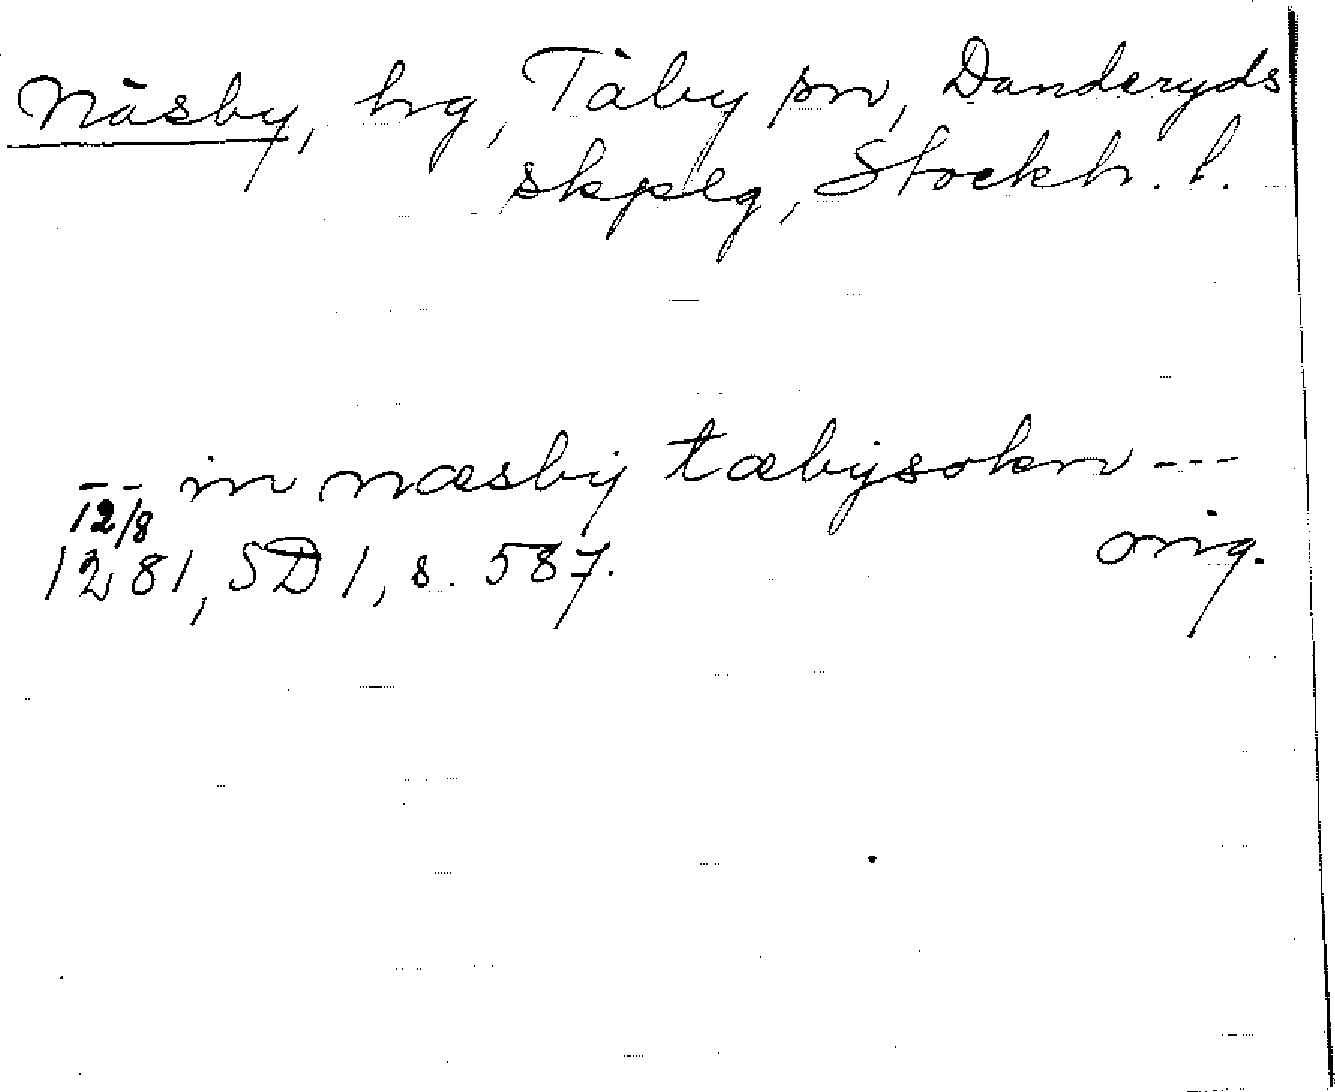 Näsby, hg, Täby sn, Danderyds
skpslg, Stockh. l.
-- in næsby tæbysokn ---
12/8
1281, SD 1, s. 587. orig.